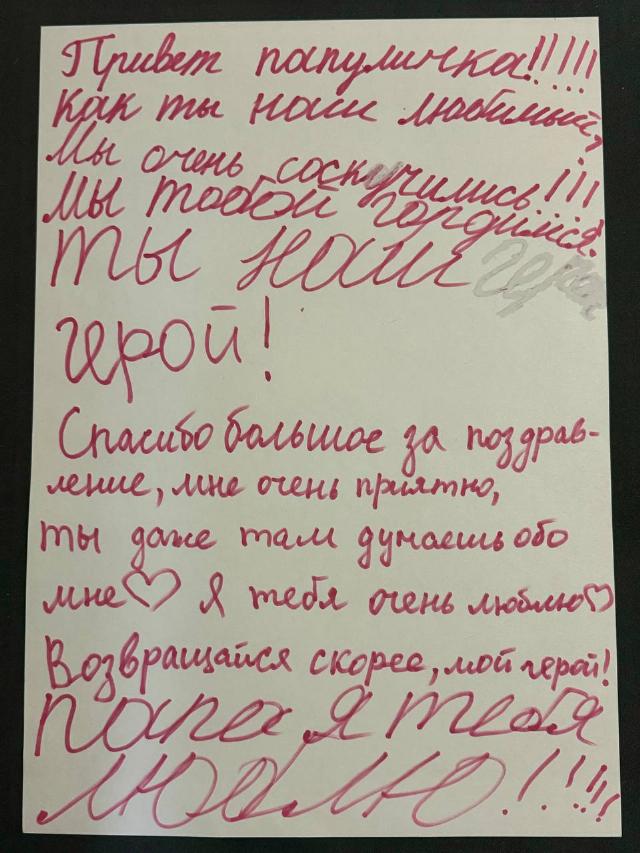 Привет папуличка!!!!!
Как ты наш любимый,
Мы очень соскучились!!!
Мы тобой гордимся!
ты наш
герой!
Спасибо большое за поздрав-
ление, мне очень приятно,
ты даже там думаешь обо
мне♡ Я тебя очень люблю♡
Возвращайся скорее, мой герой!
папа я тебя
люблю!!!!!